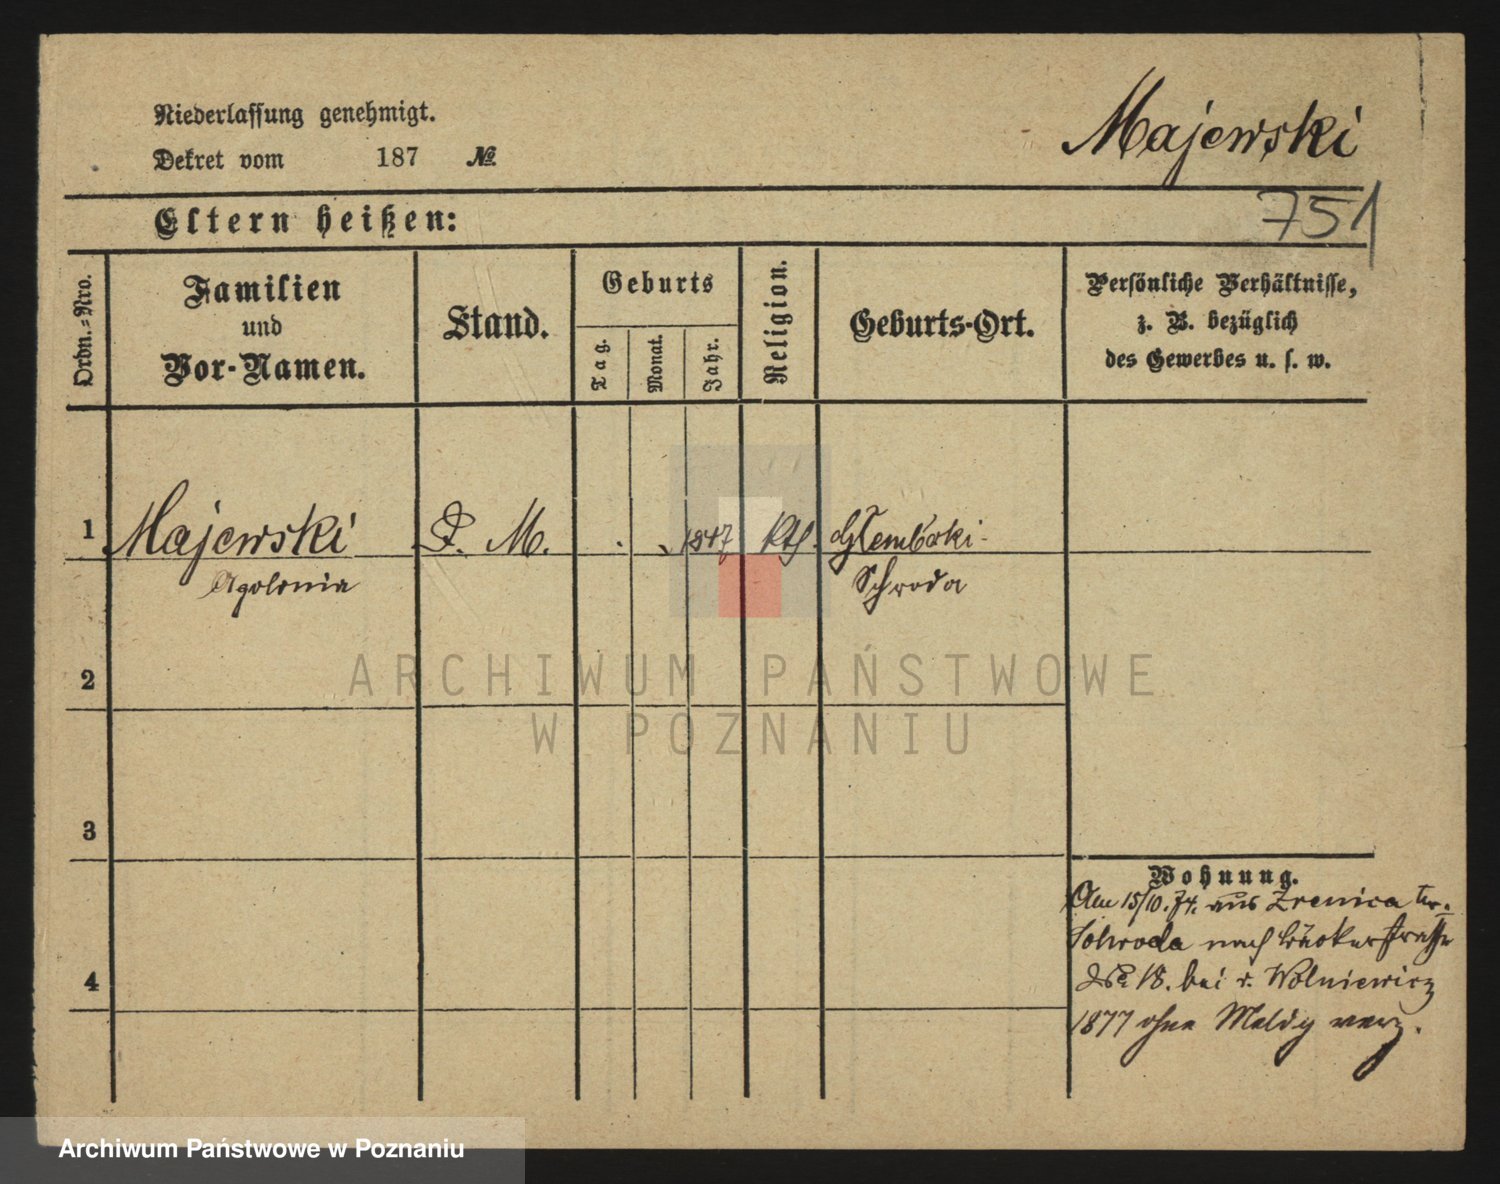 Niederlassung genehmigt.
Majewski
Dekret vom 187 №
751
Eltern heißen:
Ordn.=Nro.
Familien
und
Vor-Namen.
Stand.
Geburts
Tag.
Monat.
Jahr.
Religion.
Geburts-Ort.
Persönliche Verhältnisse,
z. B. bezüglich
des Gewerbes u. s. w.
1 Majewski D. M. 1847 Kth.
Apolonia Schroda
2
ARCHIWUM PAŃSTWOWE
W POZNANIU
3
4
Wohnung.
Am 15/10. 74. aus Zrenica
Schroda nach Bäckerstraße
№ 18. bei v. Wolniewicz
1877 ohne Meldg verz.
Archiwum Państwowe w Poznaniu